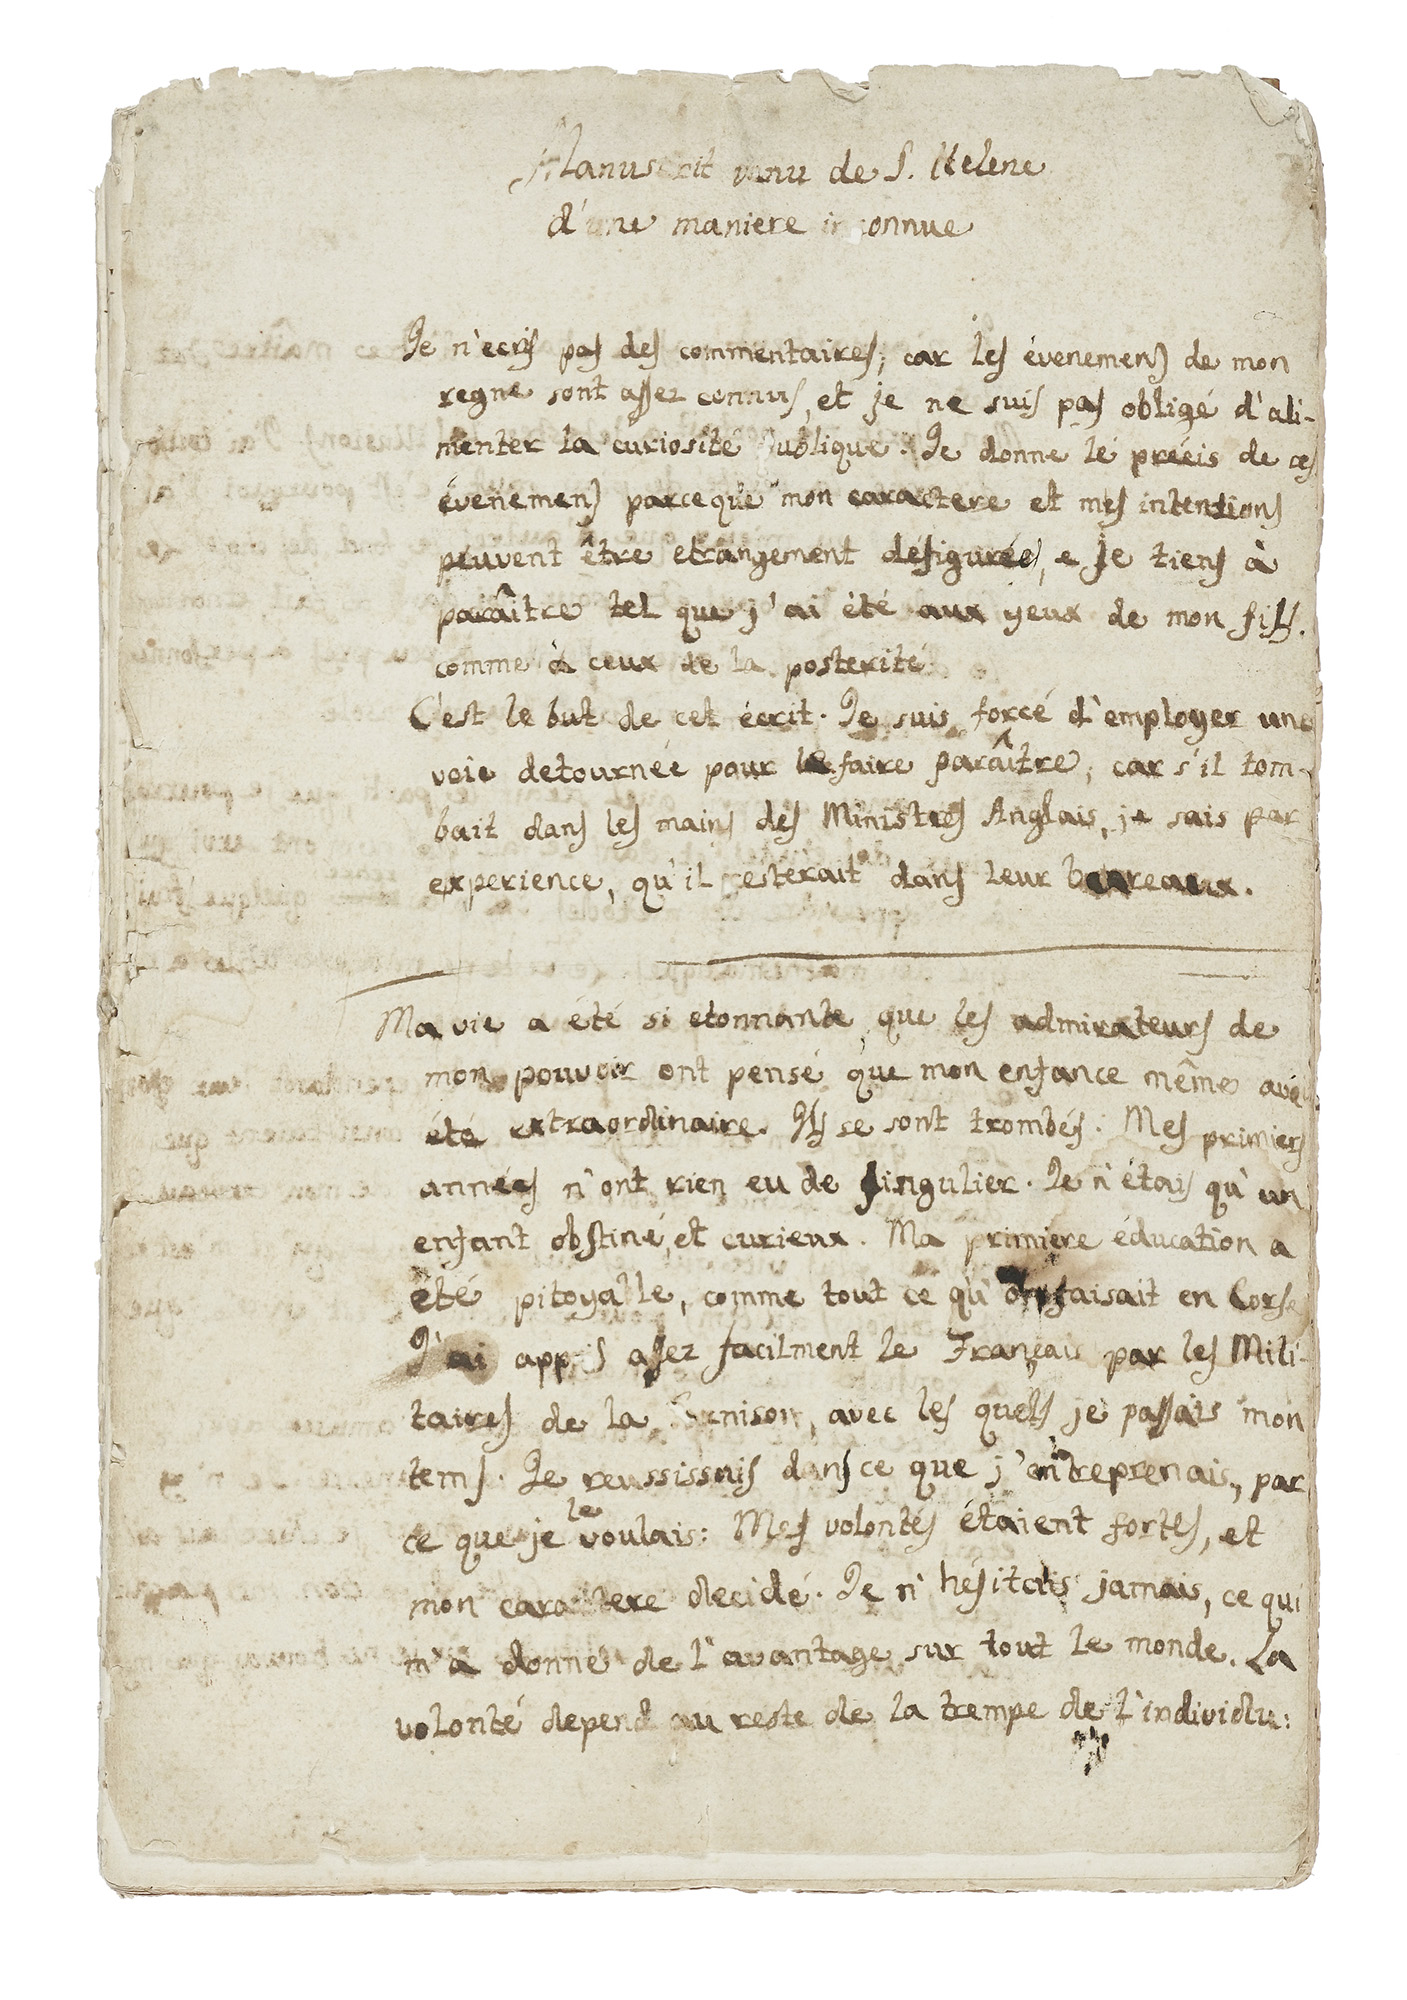 Manuscrit venu de S. Helene
d'une maniere inconnue
Je n'ecris pas des commentaires; car les évenemens de mon
regne sont assez connus, et je ne suis pas obligé d'ali-
menter la curiosité publique. Je donne le précis de ces
évenemens parceque mon caractere et mes intentions
peuvent être etrangement défigurés, e je tiens à
paraître tel que j'ai été aux yeux de mon fils.
comme à ceux de la posterité
C'est le but de cet écrit. Je suis forcé d'employer une
voie detournée pour le faire paraître; car s'il tom-
bait dans les mains des Ministres Anglais, je sais par
experience, qu'il resterait dans leur bureaux.
Ma vie a été si etonnante, que les admirateurs de
mon pouvoir ont pensé que mon enfance même avé
été extraordinaire. Ils se sont trombés. Mes primiers
années n'ont rien eu de singulier. Je n'étais qu'un
enfant obstiné, et curieux. Ma primiere éducation a
été pitoyable, comme tout ce qu'on faisait en Corse
J'ai appris assez facilment le Français par les Mili-
taires de la Garnison, avec les quels je passais mon
tems. Je reussissais dans ce que j'entreprenais, par
ce que je le voulais: Mes volontés étaient fortes, et
mon caractere decidé. Je n'hésitais jamais, ce qui
m'a donné de l'avantage sur tout le monde. La
volonté depend au reste de la trempe de l'individu: